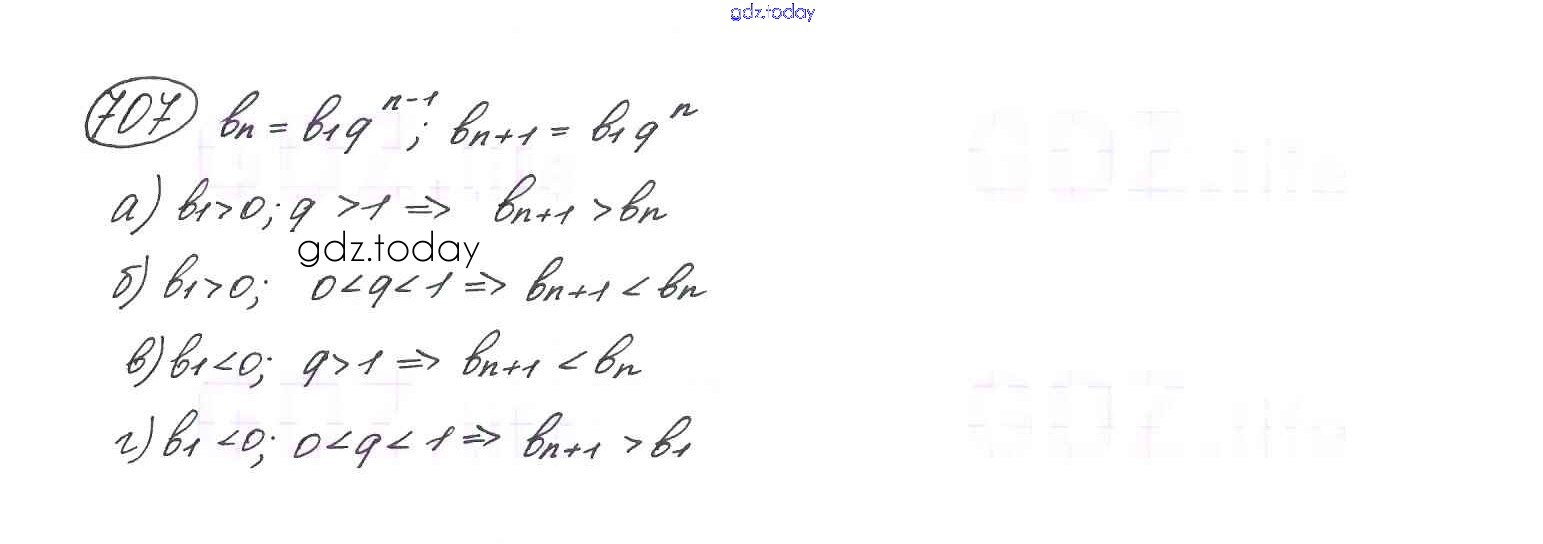 gdz.today
707 bₙ = b₁qⁿ⁻¹; bₙ₊₁ = b₁qⁿ
а) b₁>0; q >1 => bₙ₊₁ >bₙ
gdz.today
б) b₁>0; 0<q<1 => bₙ₊₁ < bₙ
в) b₁<0; q>1 => bₙ₊₁ < bₙ
г) b₁<0; 0<q<1 => bₙ₊₁ > b₁